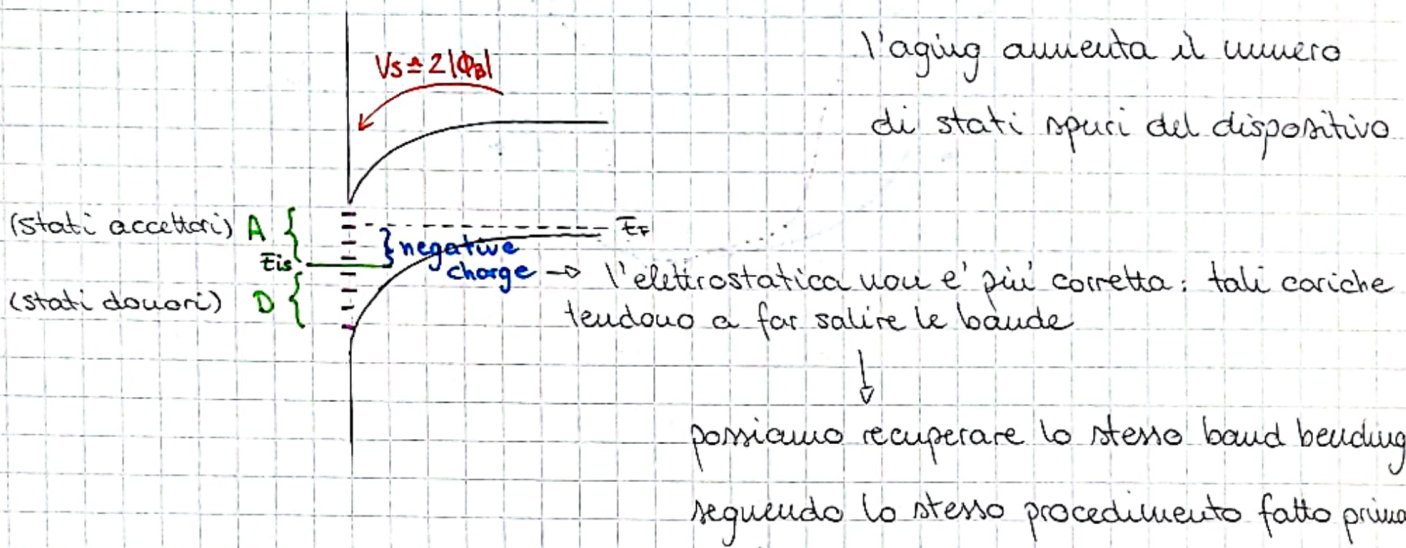 l'aging aumenta il numero
Vs ≙ 2|ΦB|
di stati spuri del dispositivo
(stati accettori) A
EF
negative
Eis
charge → l'elettrostatica non e' piu' corretta : tali cariche
(stati donori) D
tendono a far salire le bande
↓
possiamo recuperare lo stesso band bending
seguendo lo stesso procedimento fatto prima